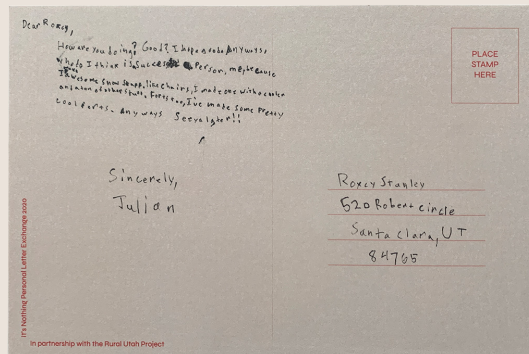 Dear Roxcy,
How are you doing? Good? I hope so. Anyways,
who I think is success person, me because
I awesome show snapp, like chairs, I made one with a cooler
and a ton of other stuff. For too, I've made some pretty
cool parts. Anyways See ya later!!
Sincerely,
Julian
PLACE
STAMP
HERE
Roxcy Stanley
520 Robert circle
Santa Clara, UT
84765
It's Nothing Personal Letter Exchange 2020
In partnership with the Rural Utah Project